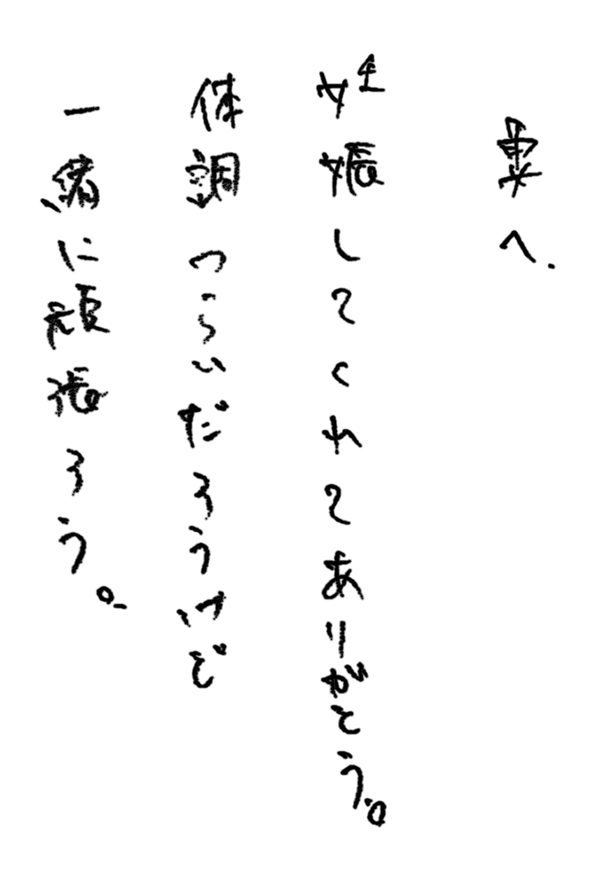 妻へ.
妊娠してくれてありがとう。
体調つらいだろうけど
一緒に頑張ろう。